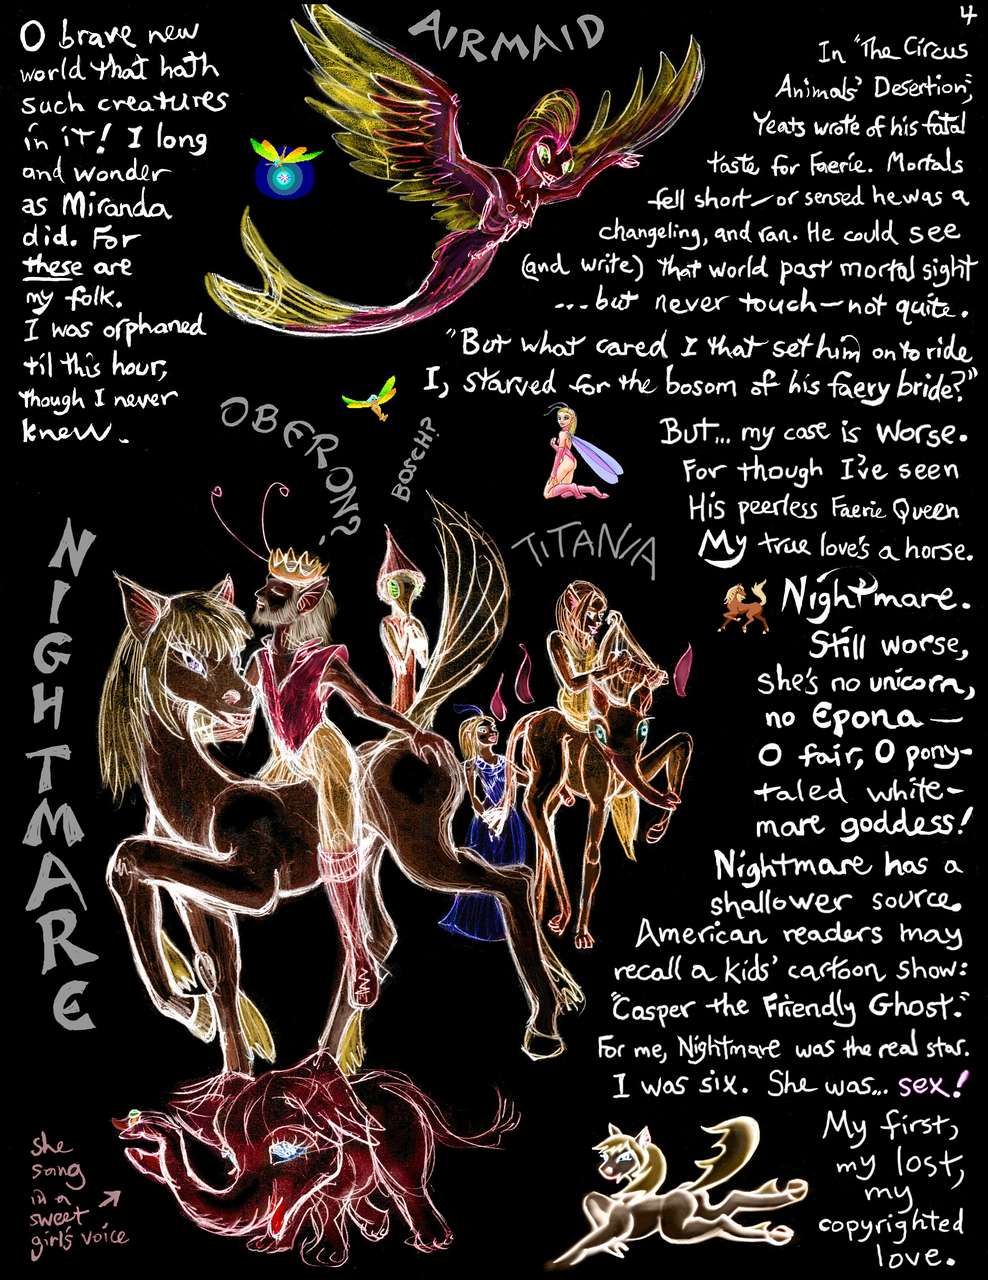 4
AIRMAID
O brave new
world that hath
such creatures
in it! I long
and wonder
as Miranda
did. For
these are
my folk.
I was orphaned
til this hour,
though I never
knew.
In "The Circus
Animals' Desertion",
Yeats wrote of his fatal
taste for Faerie. Mortals
fell short—or sensed he was a
changeling, and ran. He could see
(and write) that world past mortal sight
...but never touch—not quite.
"But what cared I that set him on to ride
I, starved for the bosom of his faery bride?"
But... my case is worse.
For though I've seen
His peerless Faerie Queen
My true love's a horse.
OBERON?
BOSCH?
TITANIA
NIGHTMARE
Nightmare.
Still worse,
she's no unicorn,
no Epona—
O fair, O pony-
taled white-
mare goddess!
Nightmare has a
shallower source.
American readers may
recall a kids' cartoon show:
"Casper the Friendly Ghost."
For me, Nightmare was the real star.
I was six. She was... sex!
My first,
my lost,
my
copyrighted
love.
she
sang
in a
sweet
girl's voice